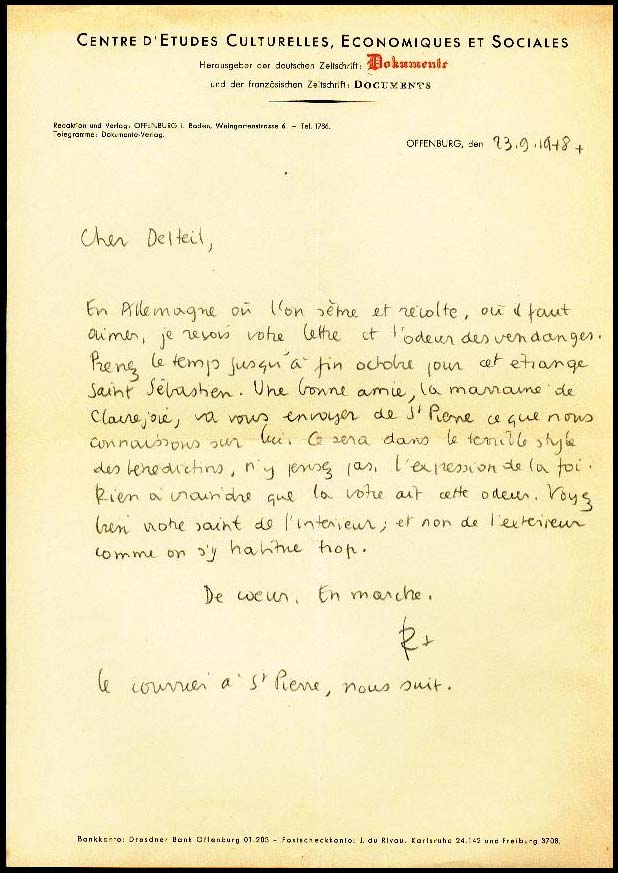 CENTRE D'ETUDES CULTURELLES, ECONOMIQUES ET SOCIALES
Herausgeber der deutschen Zeitschrift: Dokumente
und der französischen Zeitschrift: DOCUMENTS
Redaktion und Verlag: OFFENBURG i. Baden, Weingartenstrasse 6. – Tel. 1786.
Telegramme: Dokumente-Verlag.
OFFENBURG, den 23.9.1948+
Cher Delteil,
En Allemagne où l'on sème et récolte, où il faut
aimer, je reçois votre lettre et l'odeur des vendanges.
Prenez le temps jusqu'à fin octobre pour cet étrange
Saint Sébastien. Une bonne amie, la marraine de
Clairejoie, va vous envoyer de St Pierre ce que nous
connaissons sur lui. Ce sera dans le terrible style
des bénédictins, n'y pensez pas. l'expression de la foi.
Rien à craindre que la votre ait cette odeur. Voyez
bien notre saint de l'intérieur; et non de l'extérieur
comme on s'y habitue trop.
De coeur. En marche.
R+
le courrier à St Pierre, nous suit.
Bankkonto: Dresdner Bank Offenburg 01.203 – Postscheckkonto: J. du Rivau, Karlsruhe 24.142 und Freiburg 3708.